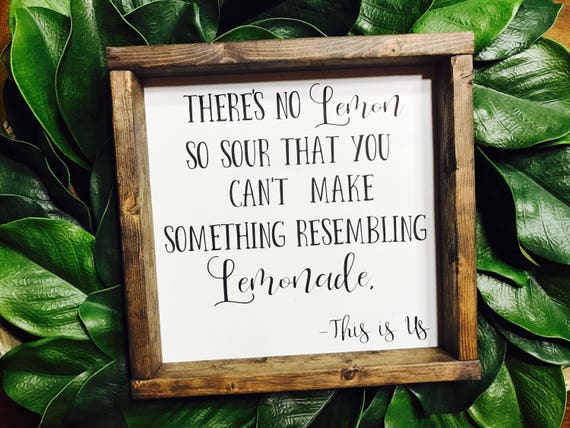 THERE'S NO Lemon
SO SOUR THAT YOU
CAN'T MAKE
SOMETHING RESEMBLING
Lemonade.
-This is Us